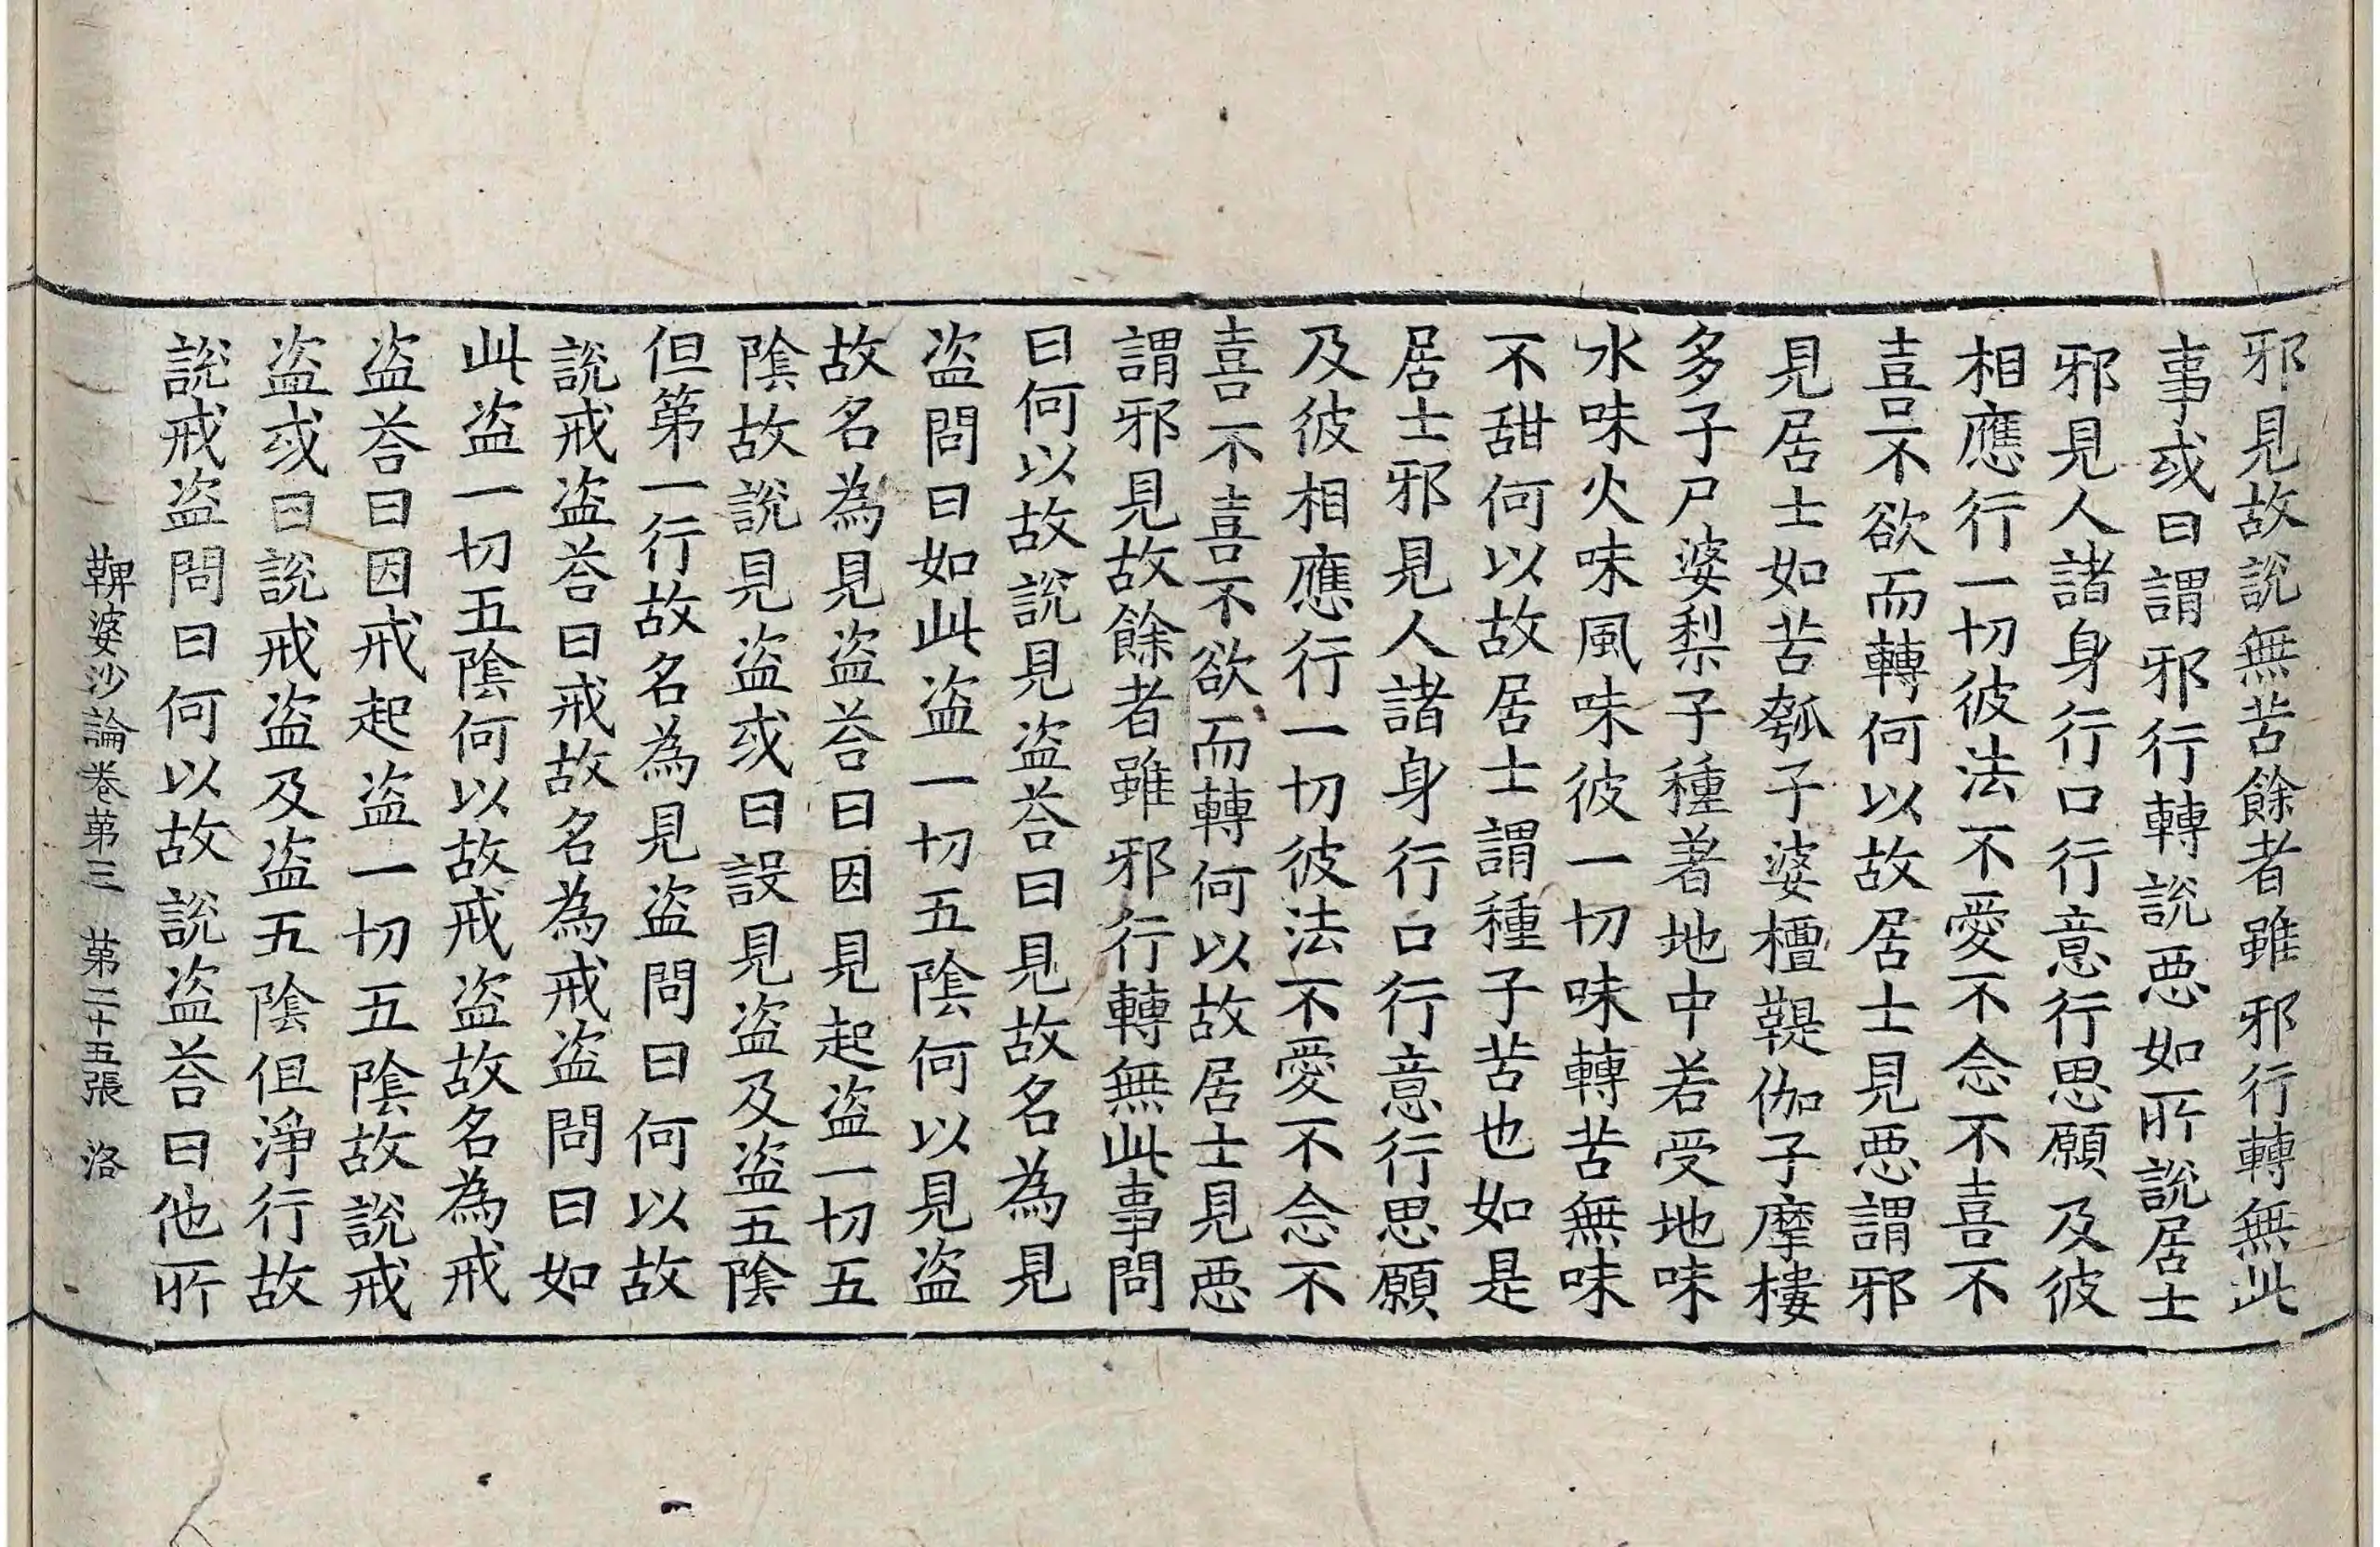 邪見故說無苦餘者雖邪行轉無此
事或曰謂邪行轉說惡如所說居士
邪見人諸身行口行意行思願及彼
相應行一切彼法不愛不念不喜不
喜不欲而轉何以故居士見惡謂邪
見居士如苦瓠子婆檀鞮伽子摩樓
多子尸婆梨子種著地中若受地味
水味火味風味彼一切味轉苦無味
不甜何以故居士謂種子苦也如是
居士邪見人諸身行口行意行思願
及彼相應行一切彼法不愛不念不
喜不喜不欲而轉何以故居士見惡
謂邪見故餘者雖邪行轉無此事問
曰何以故說見盜荅曰見故名為見
盜問曰如此盜一切五陰何以見盜
故名為見盜荅曰因見起盜一切五
陰故說見盜或曰設見盜及盜五陰
但第一行故名為見盜問曰何以故
說戒盜荅曰戒故名為戒盜問曰如
此盜一切五陰何以故戒盜故名為戒
盜荅曰因戒起盜一切五陰故說戒
盜或曰說戒盜及盜五陰但淨行故
說戒盜問曰何以故說盜荅曰他所
鞞婆沙論卷第三　第二十五張　洛